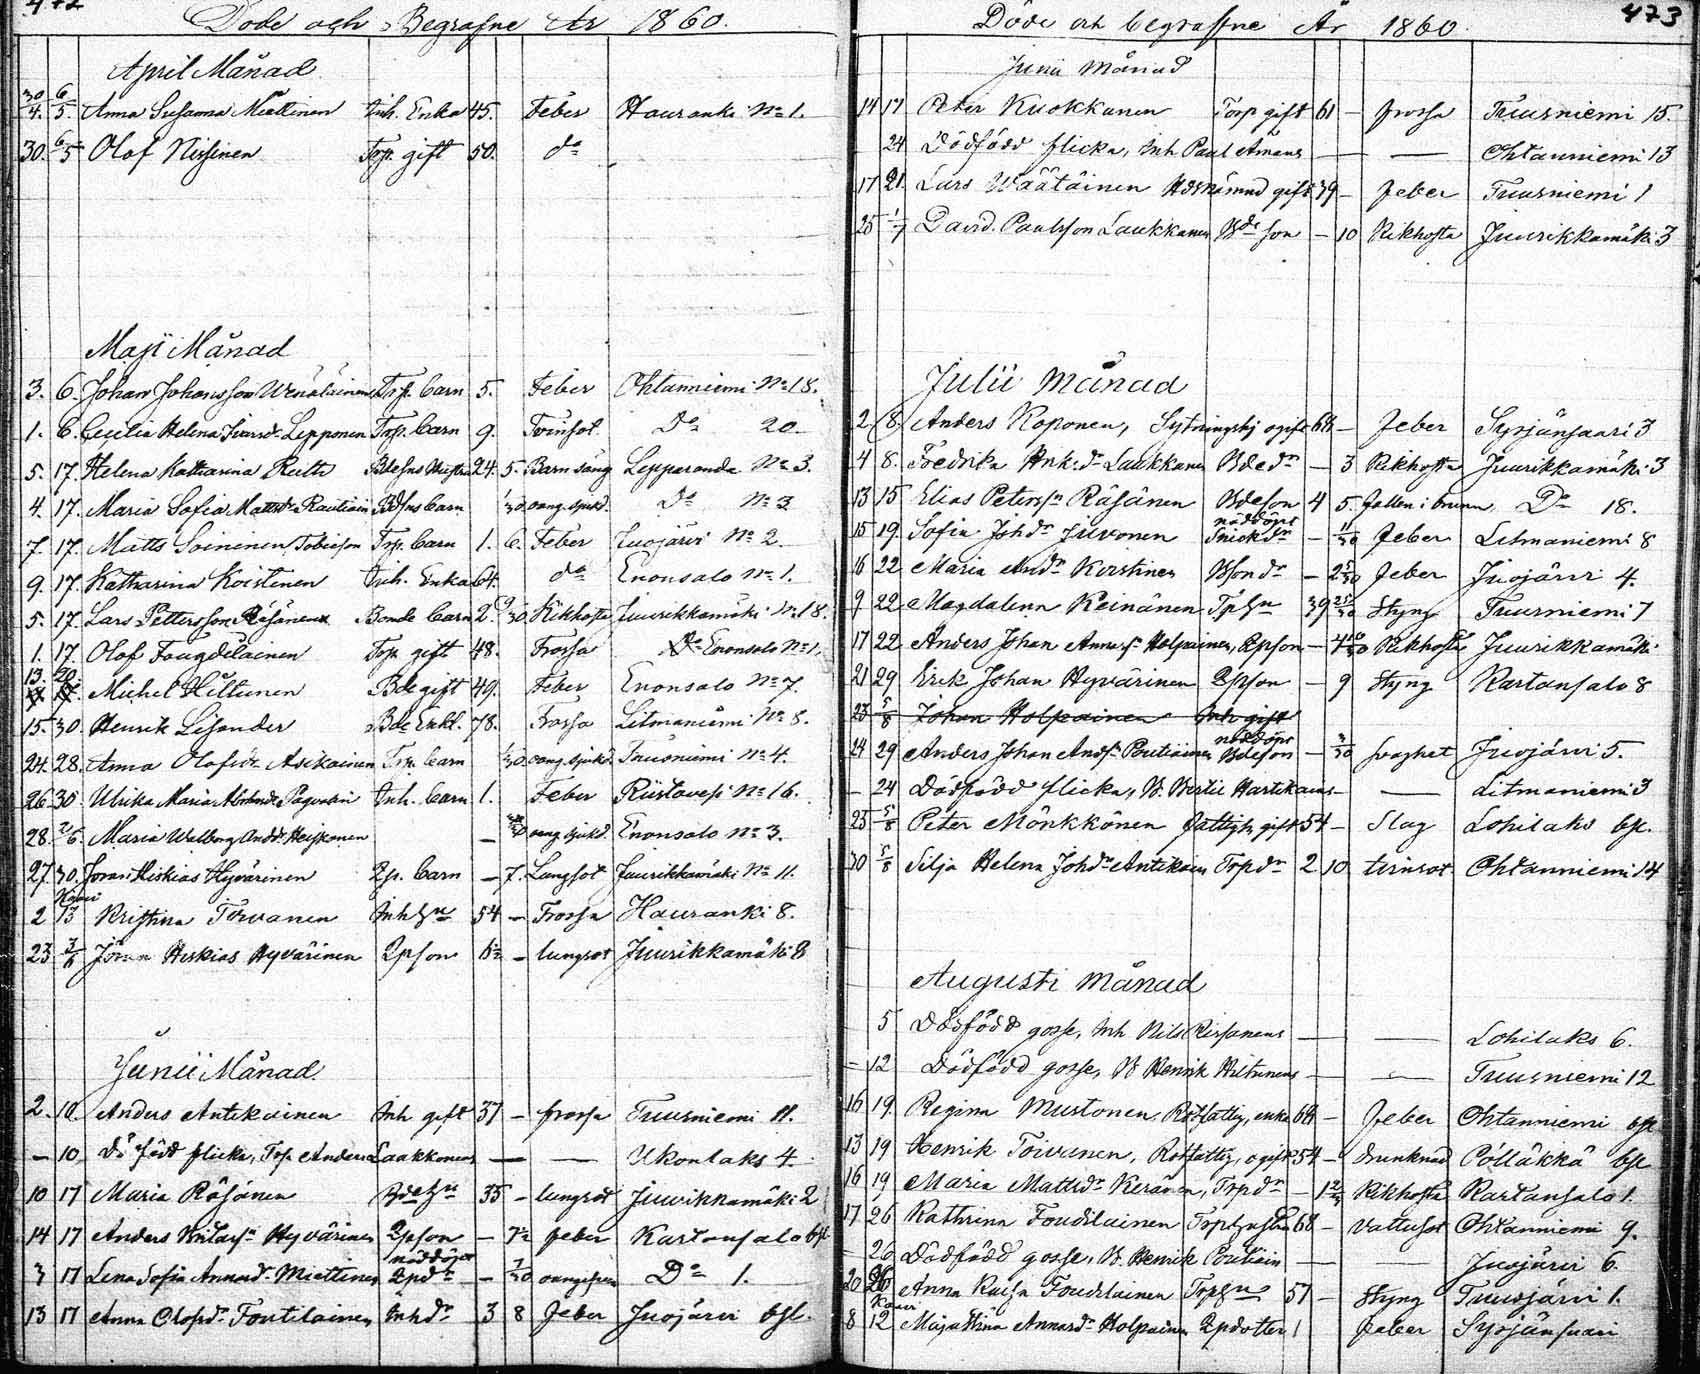 472
Döde och Begrafne År 1860.
April Månad
30/4. 6/5. Anna Susanna Miettinen Inh. Enka 45. Feber Hauranki No 1.
30. 6/5 Olof Nissinen Torp. gift 50. do
Maji Månad
3. 6. Johan Johansson Wenäläinen Torp. barn 5. Feber Ohtanniemi No 18.
1. 6. Cecilia Helena Ivarsdr Lepponen Torp. barn 9. Tvinsot. Do 20.
5. 17. Helena Katharina Rutt 24. 5. Barnsäng Lepparanda No 3.
4. 17. Maria Sofia Mattsdr Rautiain Bdesns barn 1/30 oang. sjukd. Do No 3
7. 17. Matts Soininen Tobiesson Torp. barn 1. 6. Feber Juojärvi No 2.
9. 17. Katharina Koistinen Inh. Enka 64. do Enonsalo No 1.
5. 17. Lars Pettersson Räsänen Bonde barn 2. 9/30 Kikhosta Juurikkamäki No 18.
1. 17. Olof Fougdelainen Torp. gift 48. Frossa Enonsalo No 1.
13. 20. Michel Hiltunen Bde gift 49. Feber Enonsalo No 7.
15. 30. Henrik Lesander Bde Enkl. 78. Frossa Litmaniemi No 8.
24. 28. Anna Olofsdr Asikainen Torp. barn 1/30 oang. sjukd. Tuusniemi No 4.
26. 30. Ulrika Maria Abrahmdr Pagvalin Inh. barn 1. Feber Riistavesi No 16.
28. 2/6 Maria Walborg Anddr Heiskanen oang. sjukd. Enonsalo No 3.
27. 30. Jöran Hiskias Hyvärinen Bp. barn – 7. Lungsot Juurikkamäki No 11.
2 13 Kristina Toivanen Inh hu 54 – Frossa Hauranki 8.
23 3/6 Jöran Heskias Hyvärinen Bpson 6½ – lungsot Juurikkamäki 8
Junii Månad.
2. 10. Anders Antikainen Inh gift 37 – frossa Tuusniemi 11.
– 10 Dödfödd flicka, Torp Anders Laakkonens — — Ukonlaks 4.
10 17 Maria Räsänen Bdehu 35 – lungsot Juurikkamäki 2
14 17 Anders Hyvärinen Bpson – 7½ feber Kartansalo bsl
3 17 Lena Sofia Annasd. Miettinen nöddöpt Bpdr – 7/30 Do 1.
13 17 Anna Olofsdr Foutilainen Inhdr 3 8 feber Juojärvi bsl.
473
Döde och begraffne År 1860.
Junii Månad
14 17 Peter Kuokkanen Torp gift 61 – frossa Tuusniemi 15.
24 Dödfödd flicka, Inh Paul Åmans — — Ohtanniemi 13
17 21. Lars Väätäinen Hdsnämnd gift 79 – feber Tuusniemi 1
25 1/7 David Paulsson Laukkanen Bde son – 10 Kikhosta Juurikkamäki 3
Julii Månad
2 8 Anders Koponen, Sytningshj ogift 68 – feber Syrjänsaari 3
4 8. Fredrika Hnksdr Laukkanen Bdedr – 3 Kikhosta Juurikkamäki 3
13 15 Elias Petersson Räsänen Bdeson 4 5. fallen i brunn Do 18.
15 19. Sofia Johdr Juvonen nöddöpt Snickdr – 11/30 feber Litmaniemi 8
16 22 Maria Anddr Kirstinen – 2 feber Juojärvi 4.
9 22 Magdalena Keinänen Tphu 39 25/30 Styng Tuusniemi 7
17 22 Anders Johan Annas Holpainen, Bpson – 4 Kikhosta Juurikkamäki
21 29 Erik Johan Hyvärinen Bpson – 9 Styng Kartansalo 8
23 5/8 Johan Holpainen Inh gift
24 29 Anders Johan Andsn Poutiainen nöddöpt Bdeson – 3/30 svaghet Juojärvi 5.
– 24 Dödfödd flicka, B. Bertil Hartikains — Litmaniemi 3
23 5/8 Peter Mönkkönen fattigh gift 54 – Slag Lohilaks bsl.
30 5/8 Silja Helena Johdr Antikain Torpdr 2 10 tvinsot Ohtanniemi 14
Augusti Månad
5 Dödfödd gosse, Inh Nils Kirjanens — — Lohilaks 6.
– 12 Dödfödd gosse, B Henrik Hiltunens — — Tuusniemi 12
16 19. Regina Mustonen, Rotfattig, enka 68 – feber Ohtanniemi bsl
13 19 Henrik Toivanen, Rotfattig, ogift 54 – drunknad Pölläkkä bsl
16 19 Maria Mattsdr Keränen, Torpdr – 1 Kikhosta Kartansalo 1.
17 26 Kathrina Foudilainen 68 – Vattusot Ohtanniemi 9.
– 26 Dödfödd gosse, B. Henrik Poutiain — — Juojärvi 6.
20 26 Anna Kaisa Foudilainen Torphu 57 – Styng Tuusjärvi 1.
8 12 Maja Stina Annasdr Holpainen Bpdotter 1 feber Syrjänsaari